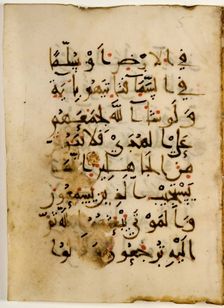 في الارض او سلما
في السما فتاتيهم باية
ولو شا الله لجمعهم
على الهدى فلا تكونن
من الجاهلين انما
يستجيب الذين يسمعون
والموتى يبعثهم الله ثم
اليه يرجعون وقالوا